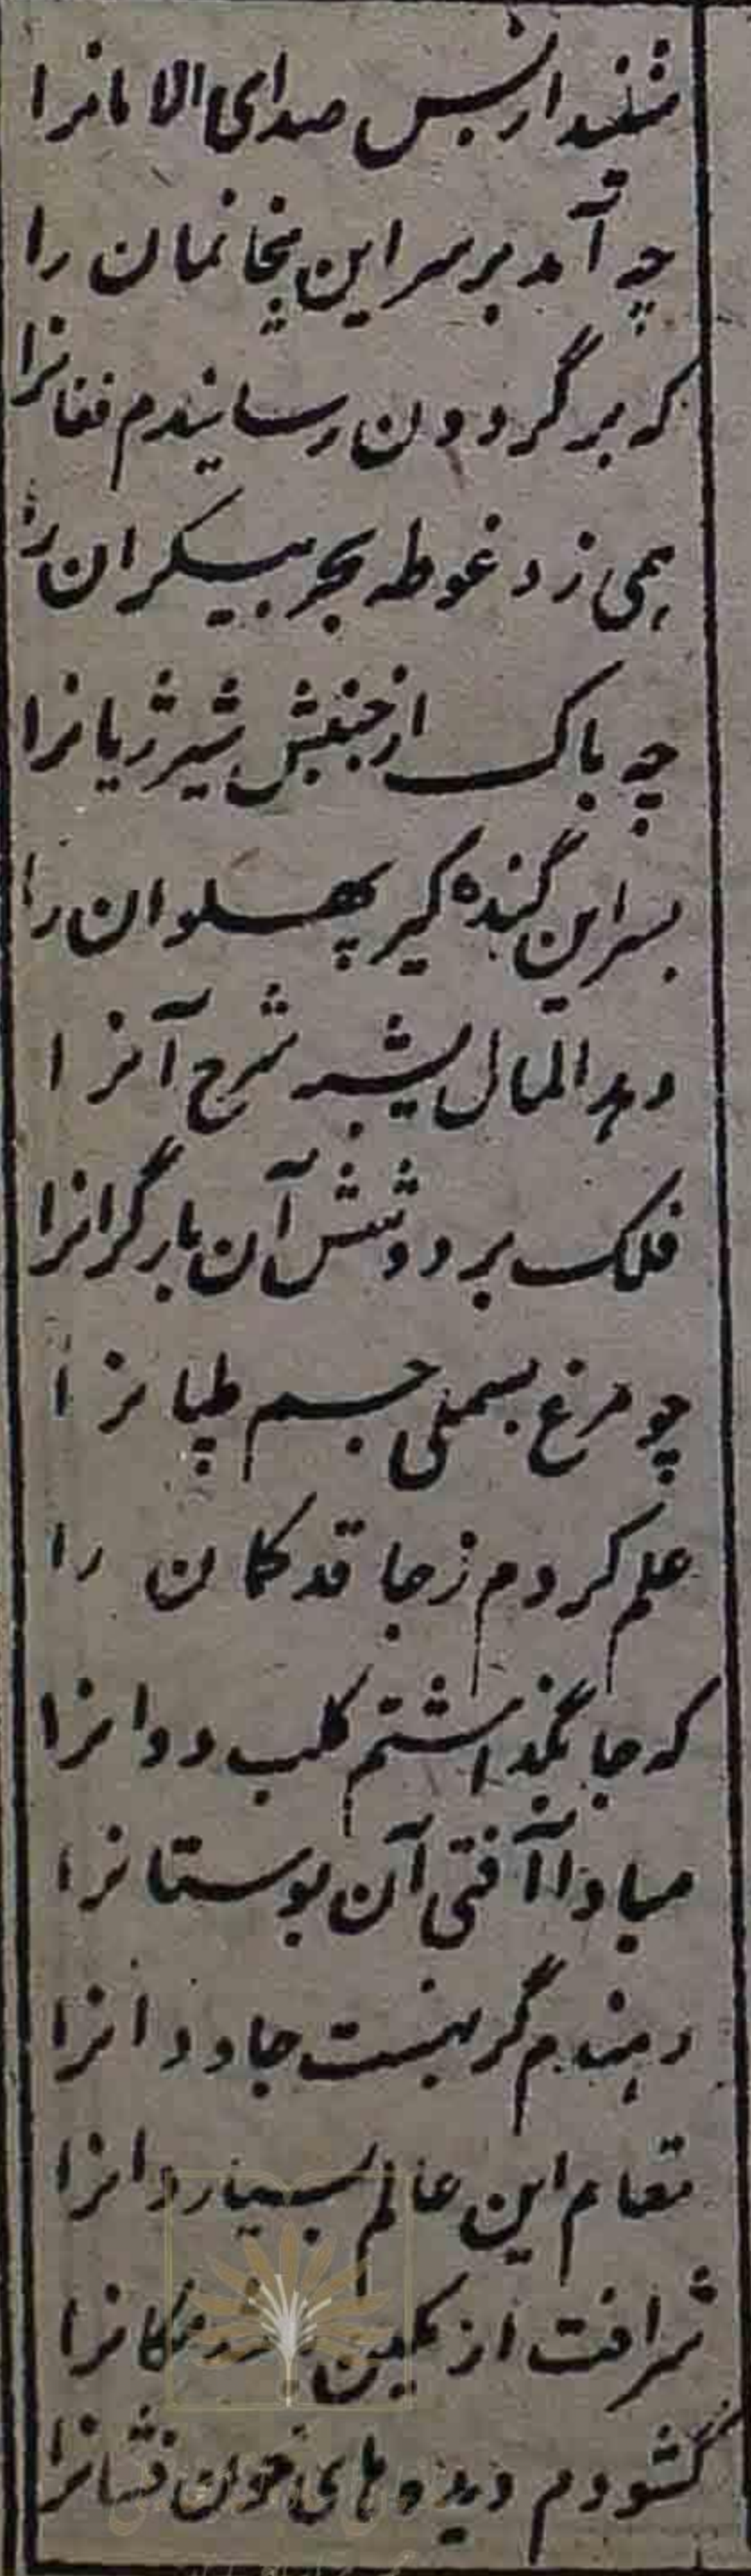 شنید از بس صدای الامانرا
چه آمد بر سر این بیخانمان را
که بر گردون رسانیدم فغانرا
همی زد غوطه بحر بیکران را
چه باک از جنبش شیر ژیانرا
بسر این گنده گیر پهلوان را
دهد المال شرح آنرا
فلک بر دوشش آن بار گرانرا
چو مرغ بسملی جسم طپانرا
علم کردم ز جا قد کمان را
که جا بگذاشتم کلب دوانرا
مبادا آفتی آن بوستانرا
دهندم گر بهشت جاودانرا
مقام این عالم بسیار دانرا
شرافت از مکین باشد مکانرا
گشودم دیدهای خون فشانرا